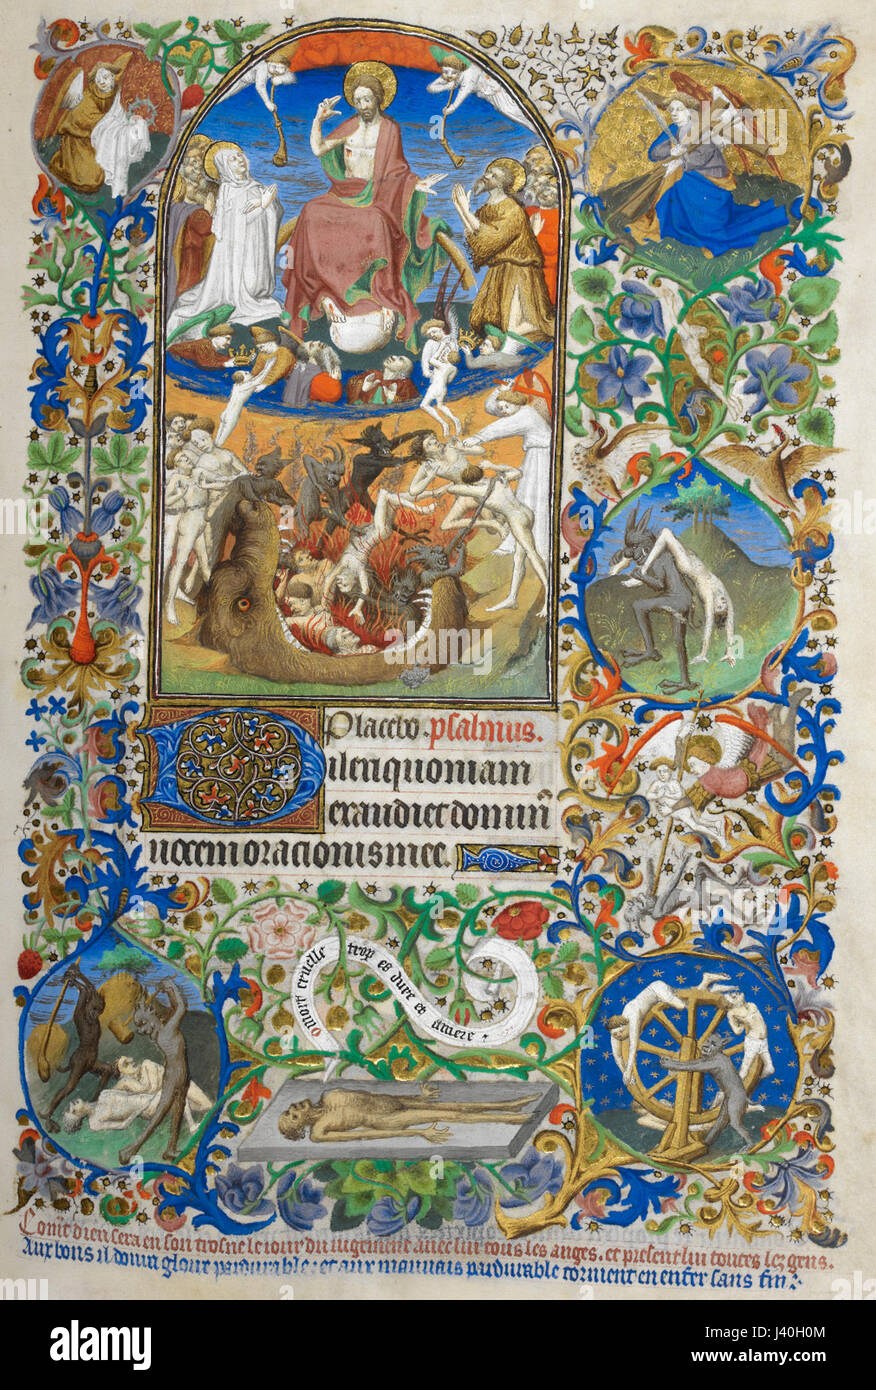 Placebo. psalmus.
Dilexi quoniam
exaudiet dominū
uocem oracionis mee.
O mort cruelle trop es dure et amere.
Com̄t dieu sera en son trosne le iour du iugement auec lui tous les anges. et present lui toutes lez gens.
Aux bons il donra gloire pardurable: et aux mauuais pardurable torment en enfer sans fin:
a alamy stock photo
alamy
Image ID: J40H0M
www.alamy.com